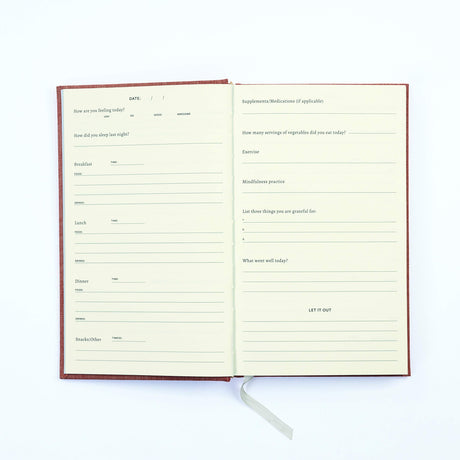 DATE: / /
How are you feeling today?
How did you sleep last night?
Breakfast TIME:
FOOD:
DRINKS:
Lunch TIME:
FOOD:
DRINKS:
Dinner TIME:
FOOD:
DRINKS:
Snacks/Other TIME(S):
Supplements/Medications (if applicable)
How many servings of vegetables did you eat today?
Exercise
Mindfulness practice
List three things you are grateful for:
What went well today?
LET IT OUT